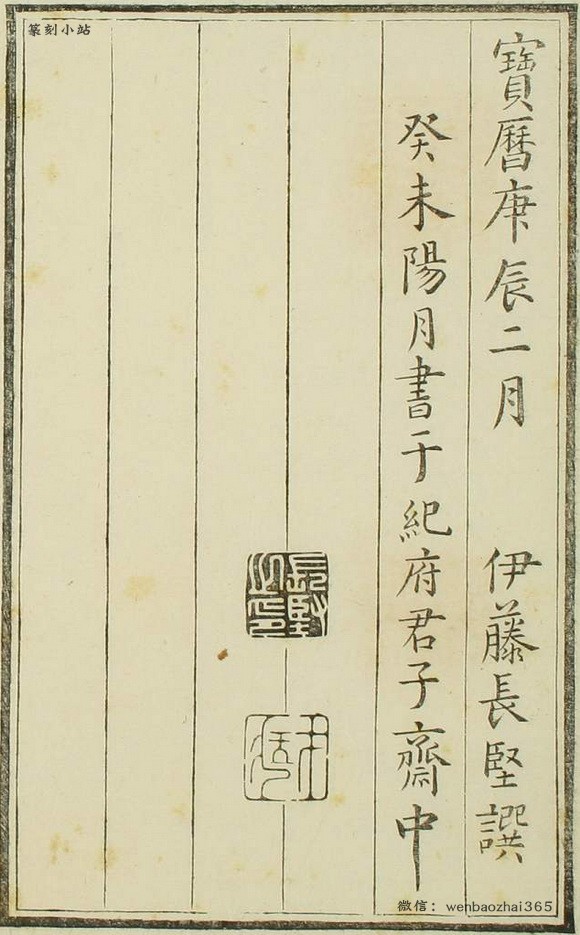 篆刻小站
寶曆庚辰二月 伊藤長堅譔
癸未陽月書于紀府君子齋中
長堅之印
微信：wenbaozhai365